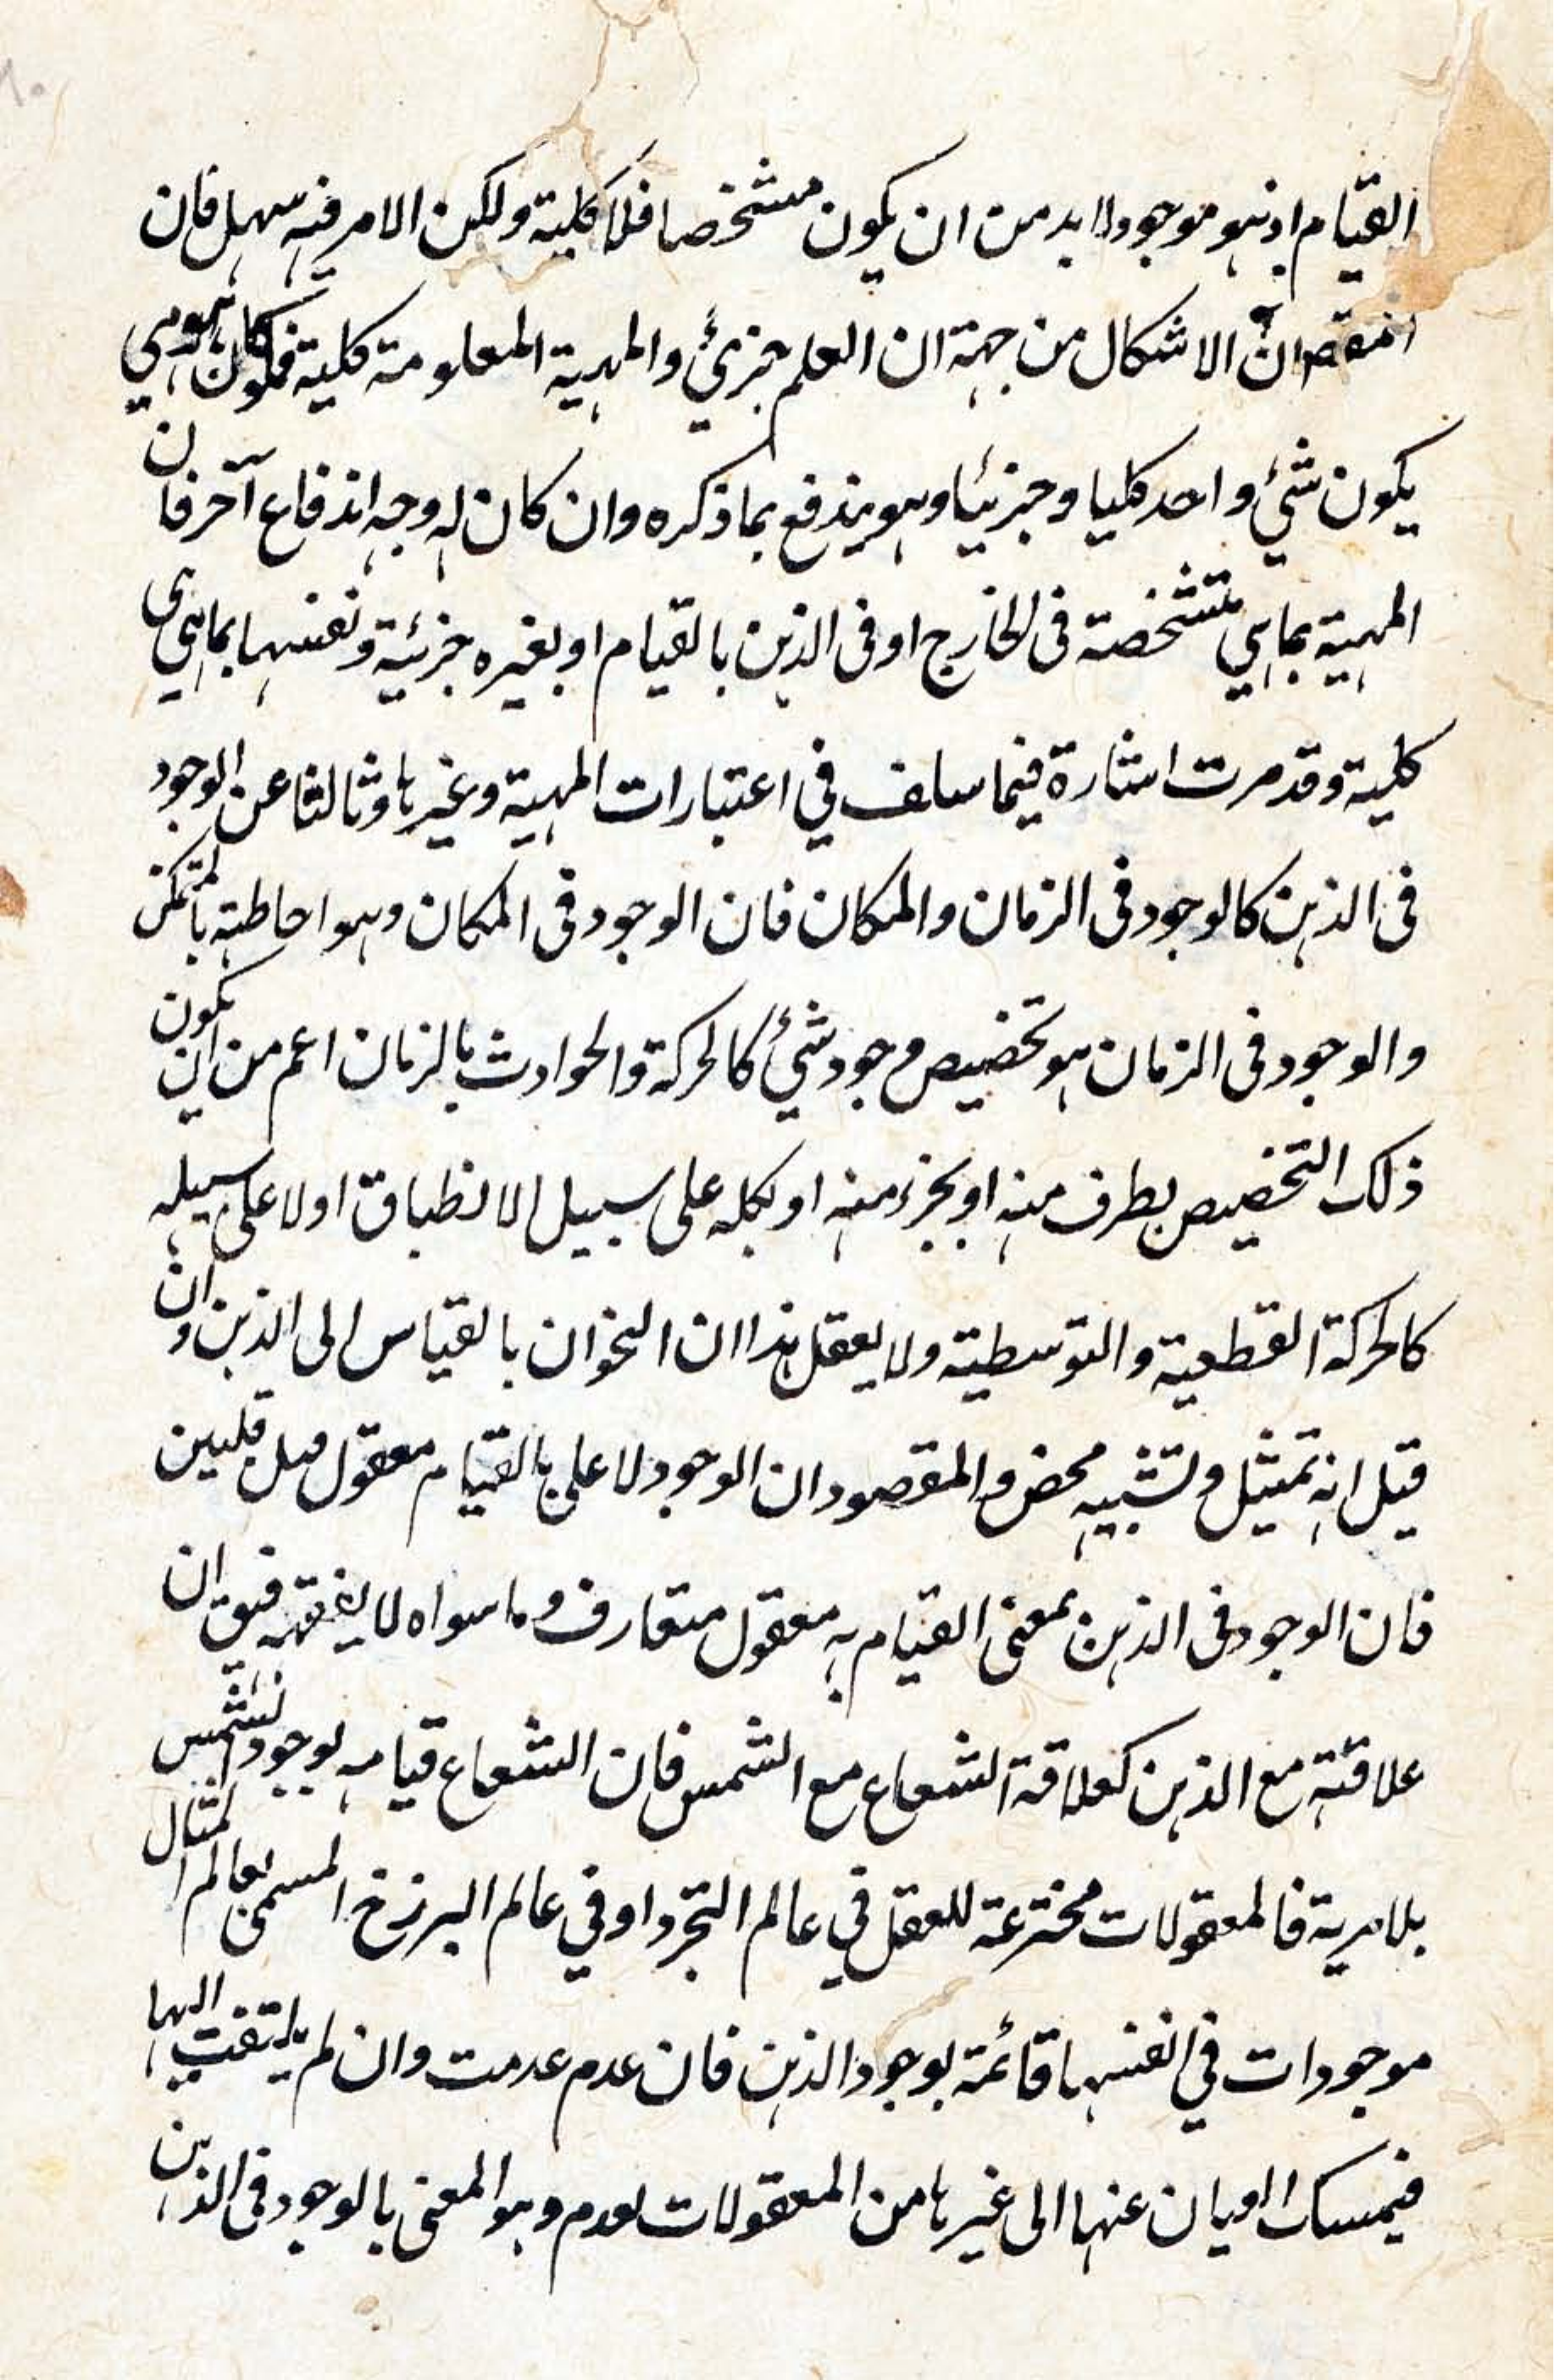 القيام اذ هو موجود لا بد من ان يكون متشخصا فلا كلية ولكن الامر فيه سهل فان
ان الاشكال من جهة ان العلم جزئي والمهية المعلومة كلية
يكون شئ واحد كليا وجزئيا وهو يندفع بما ذكره وان كان له وجه اندفاع آخر فان
المهية بما هي متشخصة فى الخارج او فى الذهن بالقيام او بغيره جزئية ونفسها بما هي هي
كلية وقد مرت اشارة فيما سلف في اعتبارات المهية وغيرها وثالثا عن الوجود
فى الذهن كالوجود فى الزمان والمكان فان الوجود فى المكان وهو احاطته بالمتمكن
والوجود فى الزمان هو تخصيص وجود شئ كالحركة والحوادث بالزمان اعم من ان يكون
ذلك التخصيص بطرف منه او بجزء منه او بكله على سبيل الانطباق او لا على سبيله
كالحركة القطعية والتوسطية ولا يعقل هذا ان النحوان بالقياس الى الذهن وان
قيل انه تمثيل وتشبيه محض والمقصود ان الوجود لا على بالقيام معقول
فان الوجود فى الذهن بمعنى القيام به معقول متعارف وما سواه لا يفقهه فيق ان
علاقته مع الذهن كعلاقة الشعاع مع الشمس فان الشعاع قيامه بوجود الشمس
بلا مرية فالمعقولات مخترعة للعقل في عالم التجرد او في عالم البرزخ المسمى بعالم المثال
موجودات في انفسها قائمة بوجود الذهن فان عدم عدمت وان لم يلتفت اليها
عنها الى غيرها من المعقولات لعدم وهو المعنى بالوجود فى الذهن